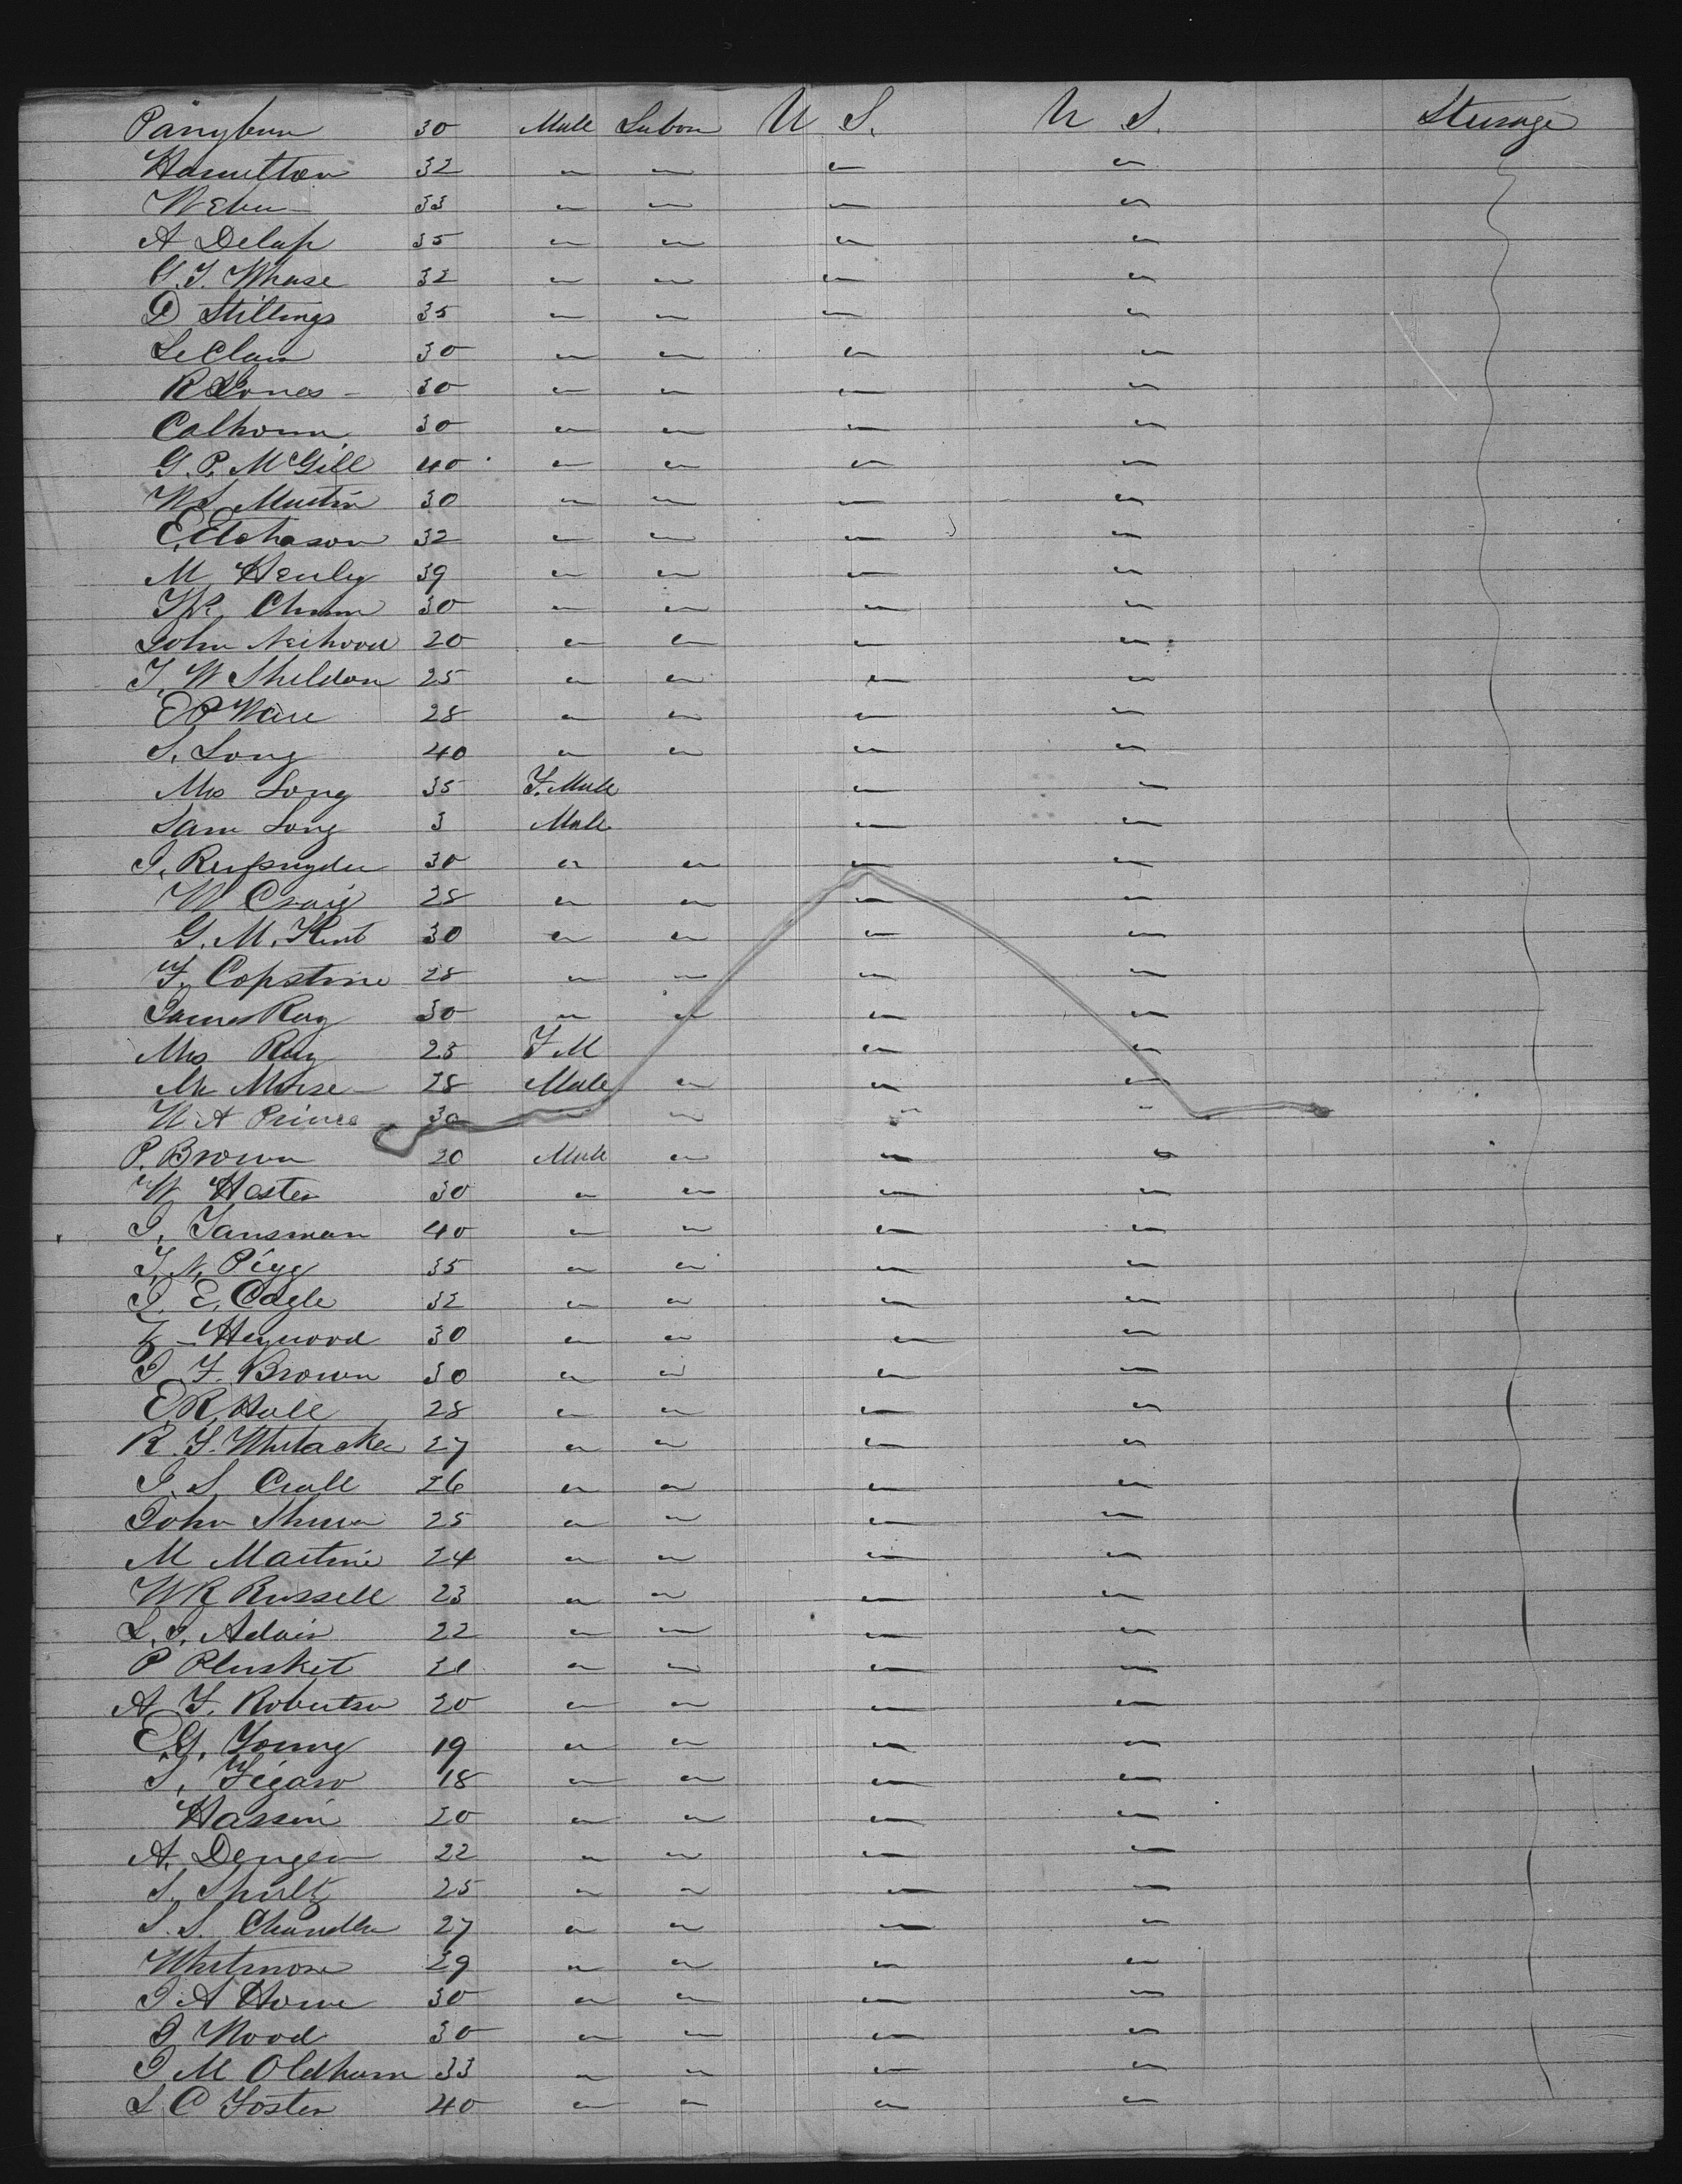 Pangburn 30 Male Labor U S. U S. Steerage
Hamilton 32 " " " "
Weber 33 " " " "
A Delap 35 " " " "
32 " " " "
D Stillings 35 " " " "
LeClair 30 " " " "
R Jones 30 " " " "
Calhoun 30 " " " "
G. P. McGill 40 " " " "
W S. Martin 30 " " " "
E. Etchason 32 " " " "
M Henley 39 " " " "
30 " " " "
John 20 " " " "
J. W Sheldon 25 " " " "
E P Ware 28 " " " "
S. Long 40 " " " "
Mrs Long 35 F. Male " "
Sam Long 3 Male " "
30 " " " "
W Craig 28 " " " "
G. M. Kent 30 " " " "
F. Copstine 28 " " " "
James Ray 30 " " " "
Mrs Ray 28 F M " "
Mr Morse 28 Male " " "
W A Prince 30 " " "
P. Brown 20 Male " " "
W Hester 30 " " " "
J. Tansman 40 " " " "
J. N. Pigg 35 " " " "
J. E. Cagle 32 " " " "
Heywood 30 " " " "
J F. Brown 30 " " " "
E. R. Hall 28 " " " "
R. F. Whitacker 27 " " " "
J. S. Crall 26 " " " "
John 25 " " " "
M Martine 24 " " " "
W R Russell 23 " " " "
L. J. Adair 22 " " " "
P Plusket 21 " " " "
A F. Robertson 20 " " " "
E. G. Young 19 " " " "
S. Figaro 18 " " " "
Hassin 20 " " " "
A. Denger 22 " " " "
S. Shultz 25 " " " "
S. S. Chandler 27 " " " "
Whitmore 29 " " " "
J A Howe 30 " " " "
J Wood 30 " " " "
J M Oldham 33 " " " "
L C Foster 40 " " " "